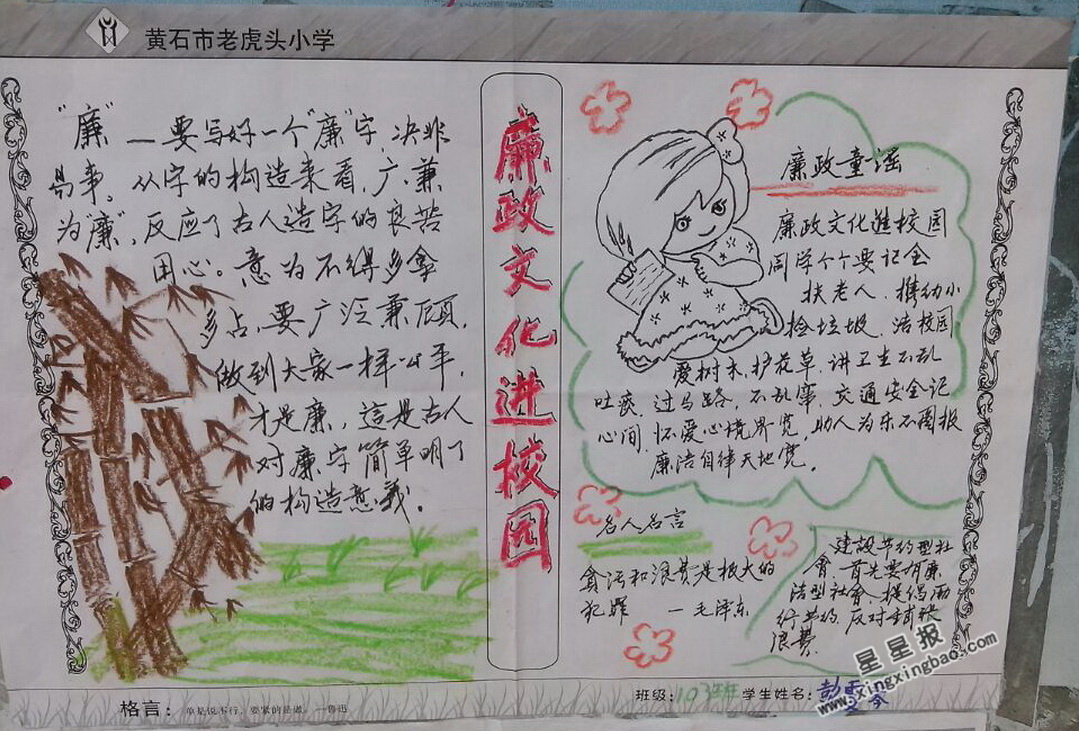 黄石市老虎头小学
"廉"—要写好一个"廉"字,决非
易事。从字的构造来看,广、兼
为"廉",反应了古人造字的良苦
用心。意为不得多拿
多占,要广泛兼顾,
做到大家一样公平,
才是廉,這是古人
对廉字简单明了
的构造意義。
廉政文化进校园
廉政童谣
廉政文化進校园
同学个个要记全
扶老人、携幼小
捡垃圾、洁校园
爱树木,护花草,讲卫生不乱
吐痰,过马路,不乱窜,交通安全记
心间,怀爱心境界宽,助人为乐不图报
廉洁自律天地宽。
名人名言
貪污和浪费是极大的
犯罪 —毛泽东
建設节约型社
會首先要有廉
洁型社會,提倡厉
行节约,反对铺张
浪费.
格言:单是说不行,要紧的是做。—鲁迅
班级: 学生姓名:彭
星星报
xingxingbao.com